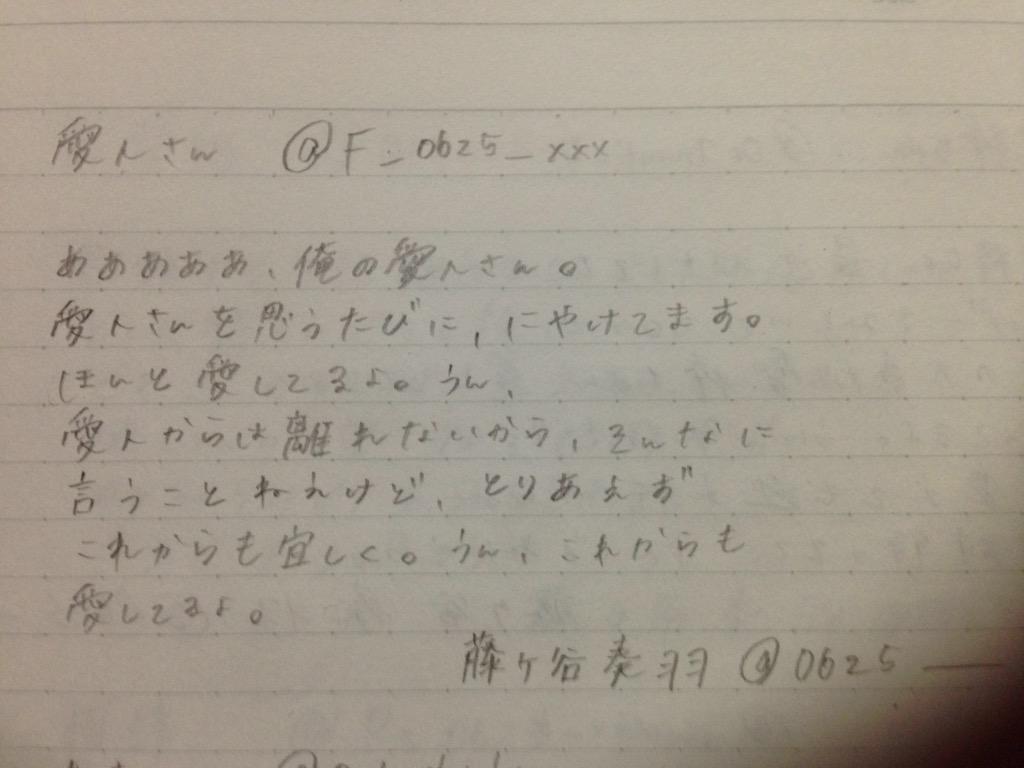 愛人さん @F_0625_xxx
あああああ、俺の愛人さん。
愛人さんを思うたびに、にやけてます。
ほんと愛してるよ。うん、
愛人からは離れないから、そんなに
言うことねえけど、とりあえず
これからも宜しく。うん、これからも
愛してるよ。
藤ヶ谷奏羽 @0625__